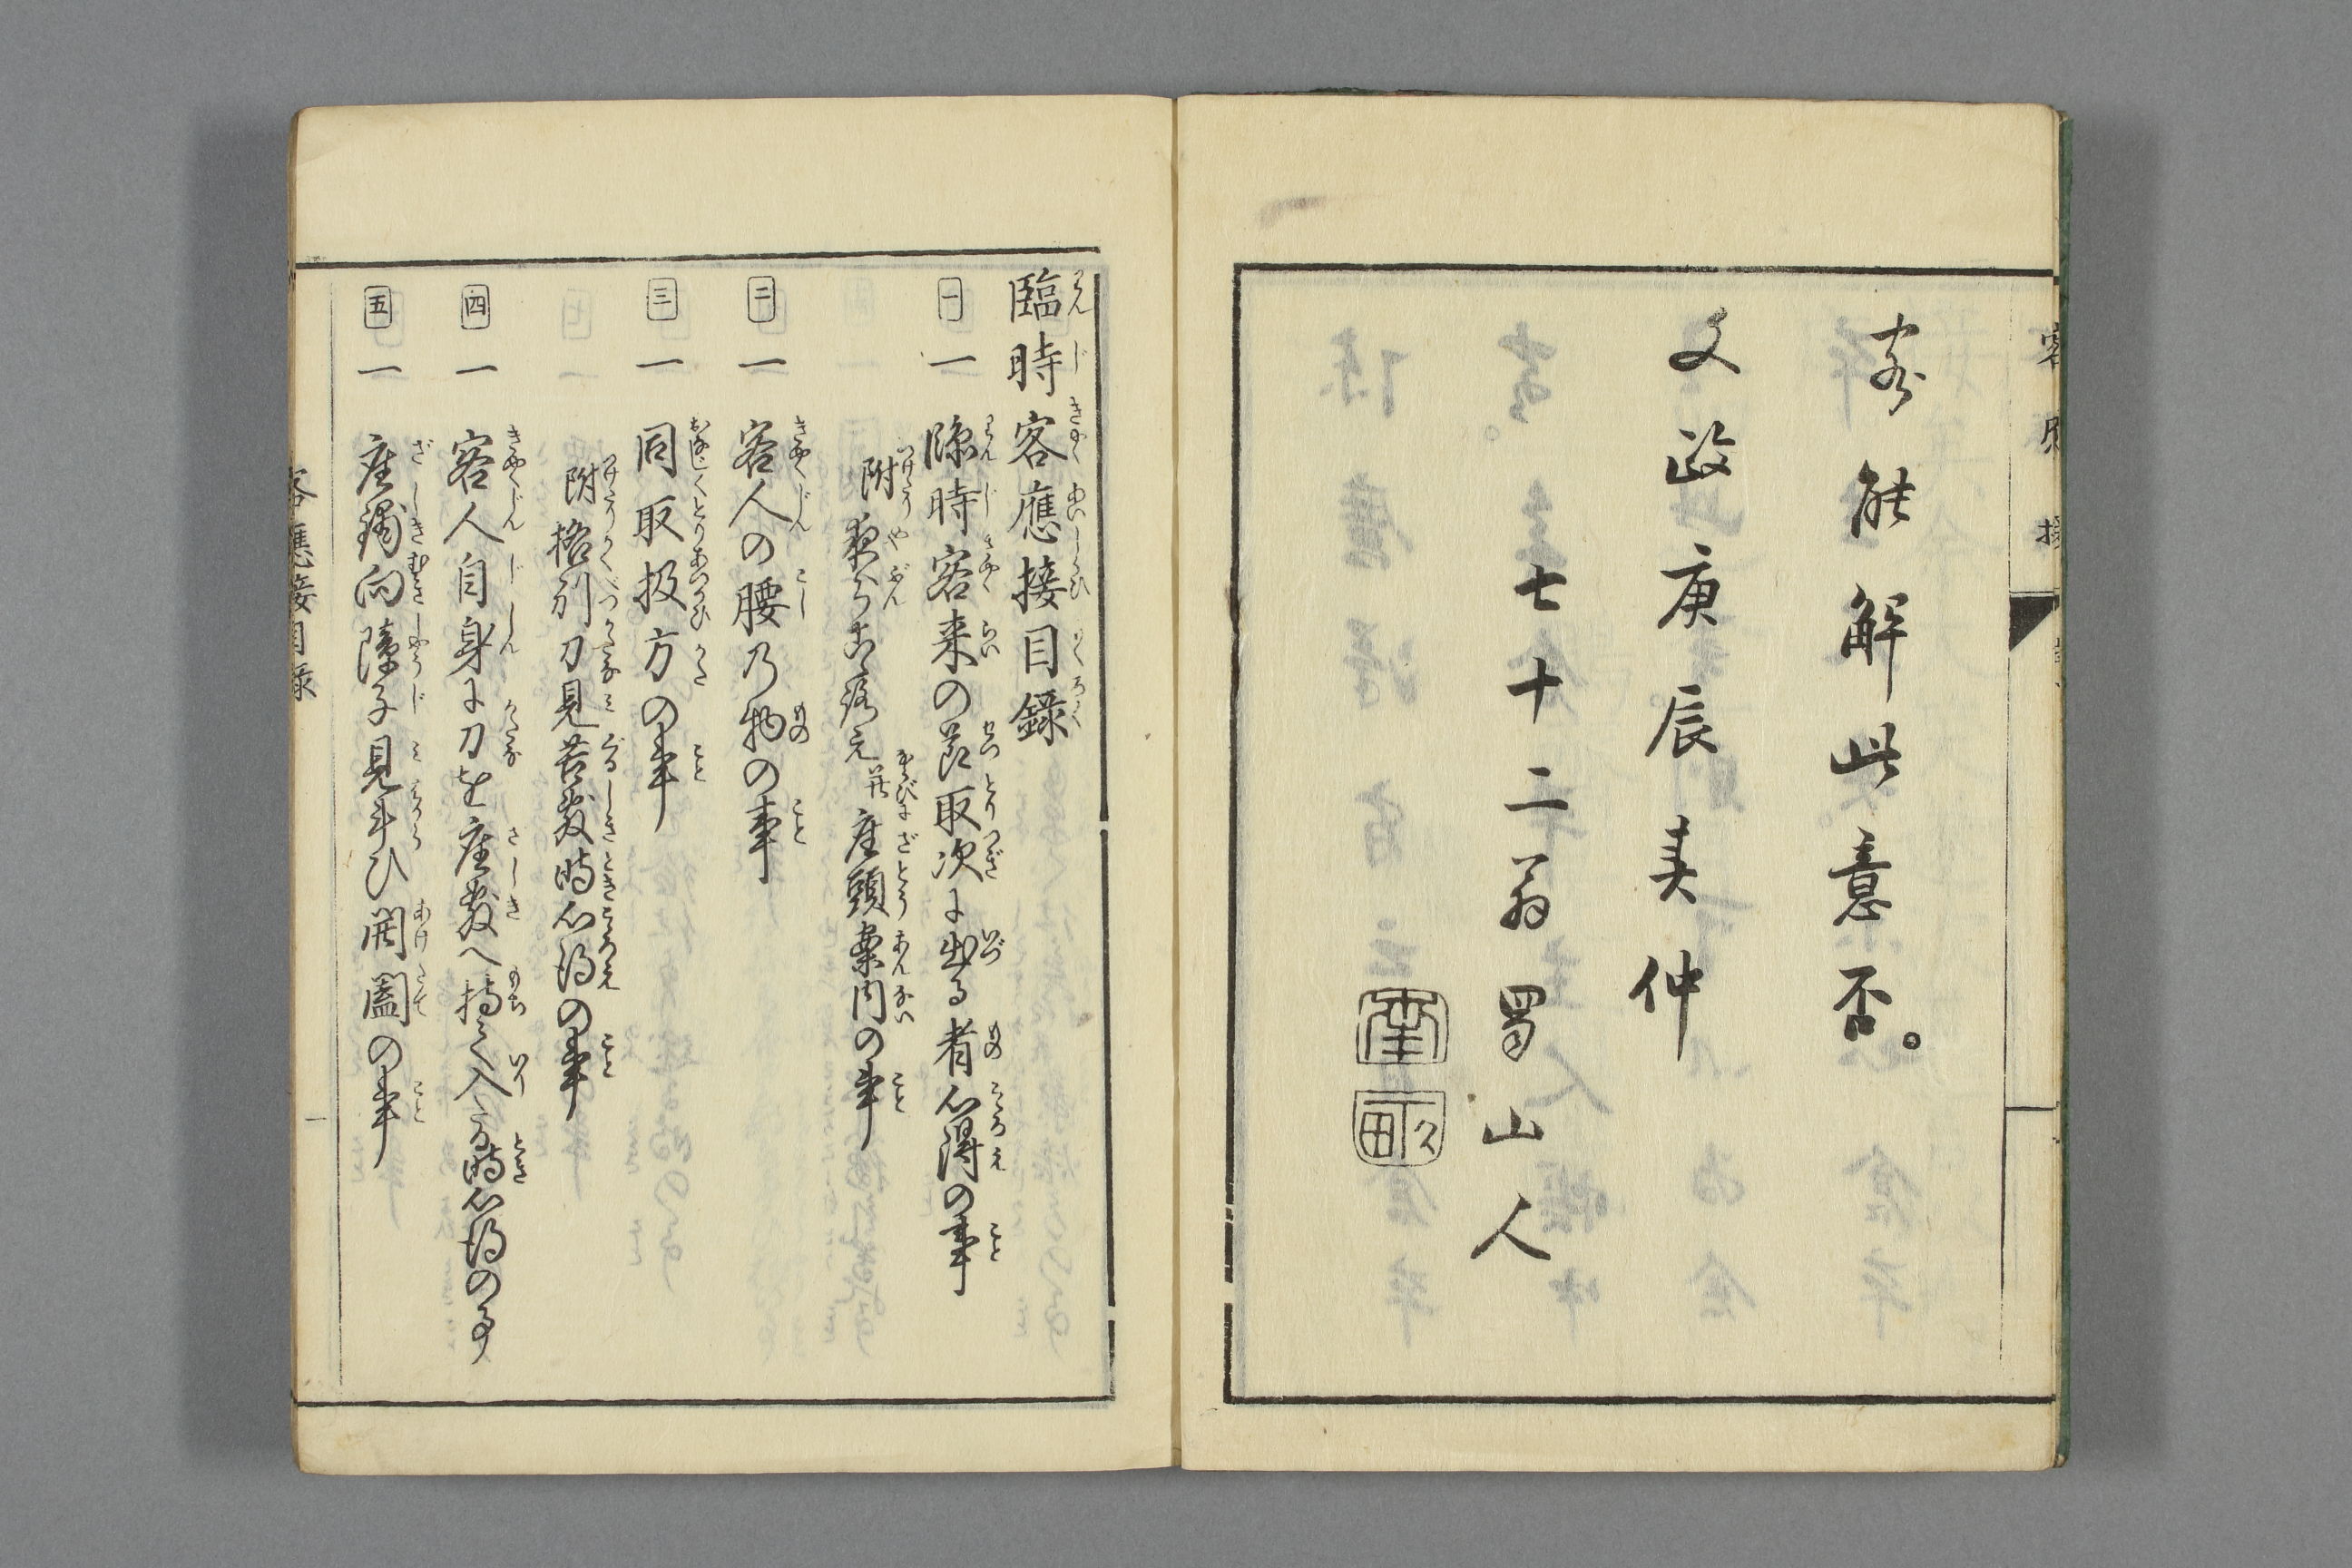 客能解此意否。
文政庚辰夷仲
七十二翁蜀山人
臨時客應接目録
一 一 臨時客来の節取次に出る者心得の事
附 夜分心得并座頭案内の事
二 一 客人の腰の物の事
三 一 同取扱方の事
附 格別刀見苦敷時心得の事
四 一 客人自身に刀を座敷へ持て入る時心得の事
五 一 座鋪向障子見計ひ開闔の事
客應接目録
一